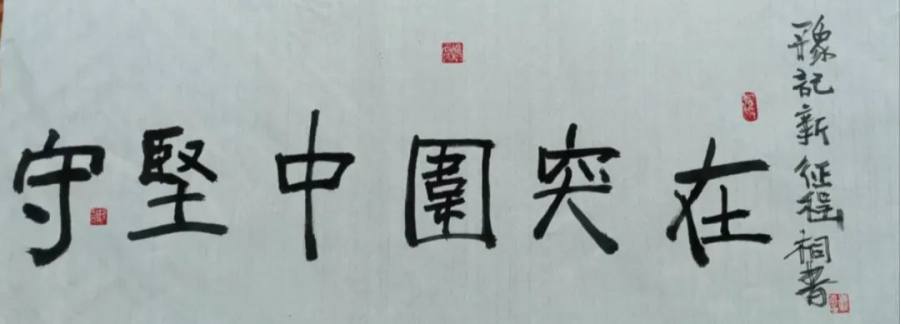 豫記新征程
在突圍中堅守